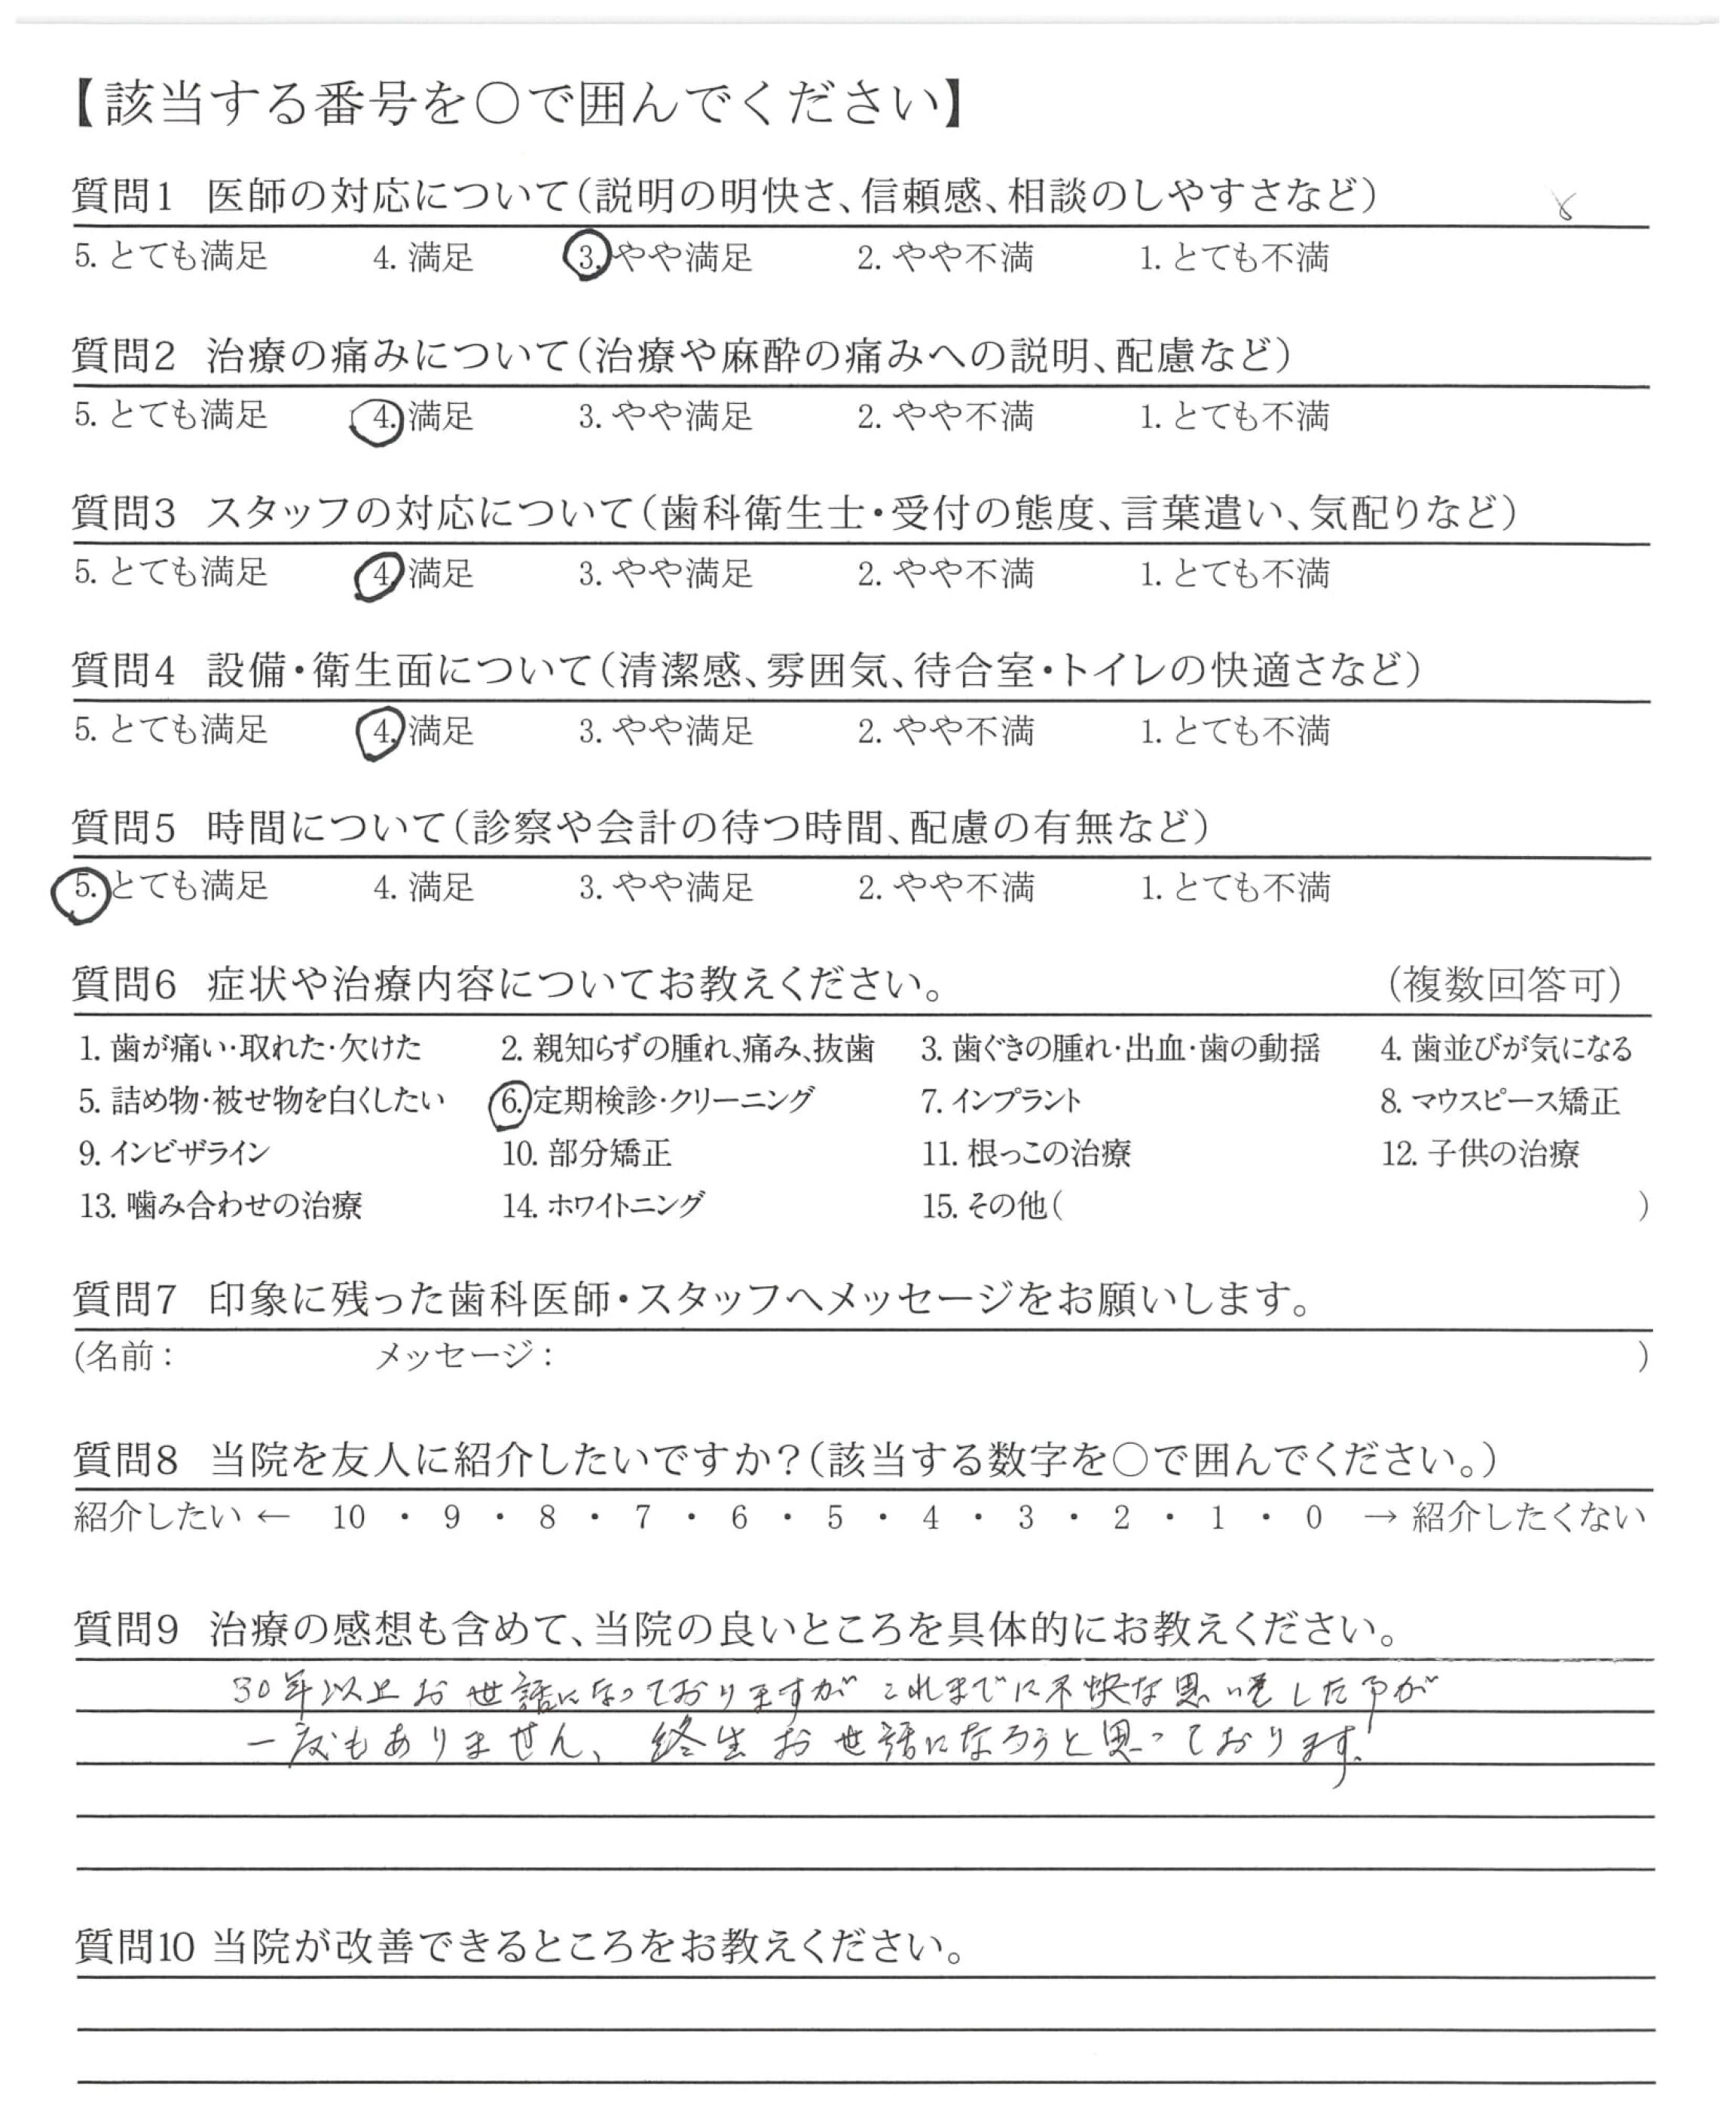 【該当する番号を○で囲んでください】
質問1 医師の対応について(説明の明快さ、信頼感、相談のしやすさなど)
5. とても満足 4. 満足 3. やや満足 2. やや不満 1. とても不満
質問2 治療の痛みについて(治療や麻酔の痛みへの説明、配慮など)
5. とても満足 4. 満足 3. やや満足 2. やや不満 1. とても不満
質問3 スタッフの対応について(歯科衛生士・受付の態度、言葉遣い、気配りなど)
5. とても満足 4. 満足 3. やや満足 2. やや不満 1. とても不満
質問4 設備・衛生面について(清潔感、雰囲気、待合室・トイレの快適さなど)
5. とても満足 4. 満足 3. やや満足 2. やや不満 1. とても不満
質問5 時間について(診察や会計の待つ時間、配慮の有無など)
5. とても満足 4. 満足 3. やや満足 2. やや不満 1. とても不満
質問6 症状や治療内容についてお教えください。 (複数回答可)
1. 歯が痛い・取れた・欠けた 2. 親知らずの腫れ、痛み、抜歯 3. 歯ぐきの腫れ・出血・歯の動揺 4. 歯並びが気になる
5. 詰め物・被せ物を白くしたい 6. 定期検診・クリーニング 7. インプラント 8. マウスピース矯正
9. インビザライン 10. 部分矯正 11. 根っこの治療 12. 子供の治療
13. 噛み合わせの治療 14. ホワイトニング 15. その他( )
質問7 印象に残った歯科医師・スタッフへメッセージをお願いします。
(名前: メッセージ: )
質問8 当院を友人に紹介したいですか?(該当する数字を○で囲んでください。)
紹介したい ← 10 ・ 9 ・ 8 ・ 7 ・ 6 ・ 5 ・ 4 ・ 3 ・ 2 ・ 1 ・ 0 → 紹介したくない
質問9 治療の感想も含めて、当院の良いところを具体的にお教えください。
30年以上お世話になっておりますがこれまでに不快な思いをした事が
一度もありません、終生お世話になろうと思っております!
質問10 当院が改善できるところをお教えください。